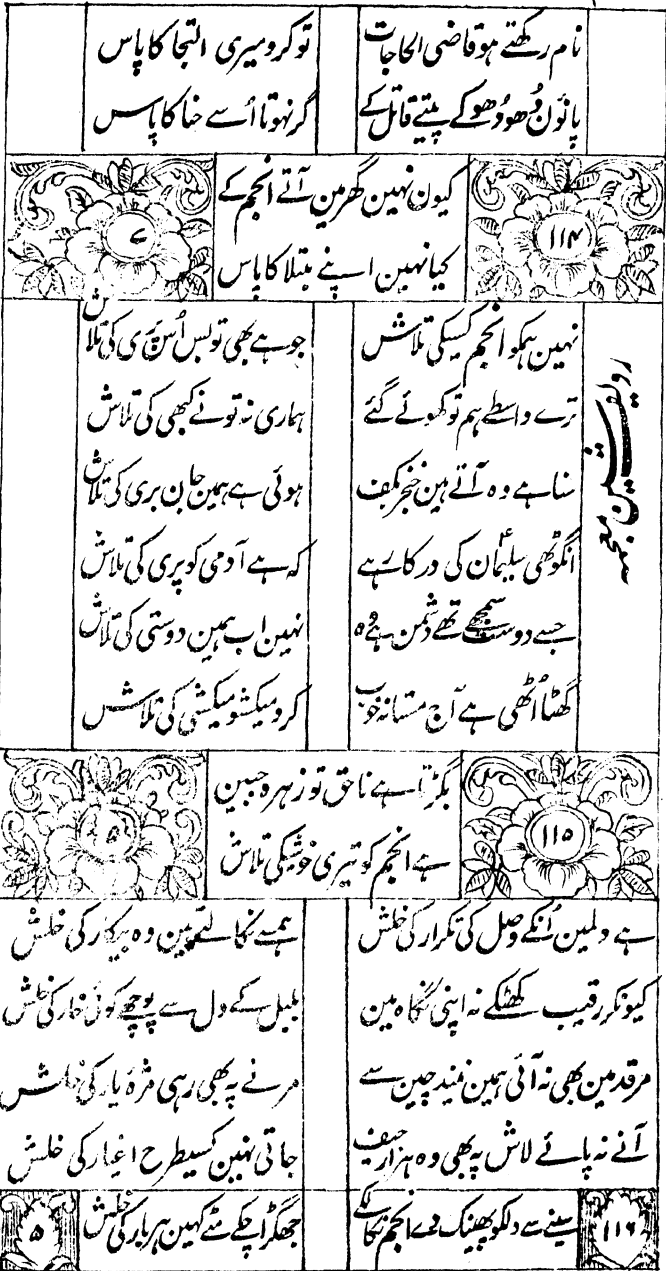 نام رکھتے ہو قاضی الحاجات
تو کرو میری التجا کا پاس
پانؤن دُھو دُھو کے پیتے قاتل کے
گر نہوتا اُسے حنا کا پاس
۱۱۴
کیون نہین گھر مین آتے انجم کے
کیا نہین اپنے مبتلا کا پاس
۷
ردیف شین معجمہ
نہین ہمکو انجم کسیکی تلاش
جو ہے بھی تو بس اُس پری کی تلاش
ترے واسطے ہم تو کھوئے گئے
ہماری نہ تو نے کبھی کی تلاش
سنا ہے وہ آتے ہین خنجر بکف
ہوئی ہے ہمین جان بری کی تلاش
انگوٹھی سلیمان کی درکار ہے
کہ ہے آدمی کو پری کی تلاش
جسے دوست سمجھے تھے دشمن ہے وہ
نہین اب ہمین دوستی کی تلاش
گھٹا اُٹھی ہے آج مستانہ خوب
کرو میکشو میکشی کی تلاش
۱۱۵
بگڑتا ہے ناحق تو زہرہ جبین
ہے انجم کو تیری خوشیکی تلاش
ہے دلمین اُنکے وصل کی تکرار کی خلش
ہمسے نکالتے ہین وہ بیکار کی خلش
کیونکر رقیب کھٹکے نہ اپنی نگاہ مین
بلبل کے دل سے پوچھے کوئی خار کی خلش
مرقد مین بھی نہ آئی ہمین نیند چین سے
مرنے پہ بھی رہی مژۂ یار کی خلش
آنے نہ پائے لاش پہ بھی وہ ہزار حیف
جاتی نہین کسیطرح اغیار کی خلش
۱۱۶
سینے سے دلکو پھینک دے انجم نکالکے
جھگڑا چکے مٹے کہین ہر بار کی خلش
۵